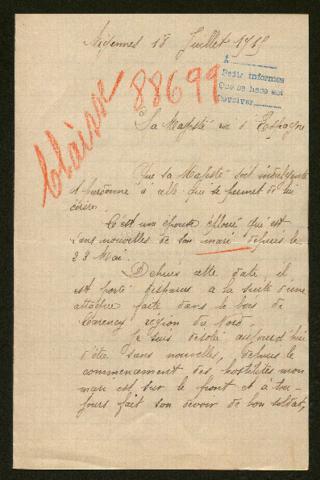 Migennes 18 Juillet 1915
A
Pedir informes
Que se hace su
Devolver
Claisse 88699
Sa Majesté roi d'Espagne
Que sa Majesté soit indulgente
et pardonne à celle qui se permet de lui
écrire.
C'est une épouse éplorée qui est
sans nouvelles de son mari depuis le
28 Mai.
Dehuis cette date, il
est porté disparus à la suite d'une
attaque faite dans le bois de
Carency région du Nord.
Je suis désolé aujourd'hui
d'être sans nouvelles, depuis le
commencement des hostilités mon
mari est sur le front et a tou-
jours fait son devoir de bon soldat,